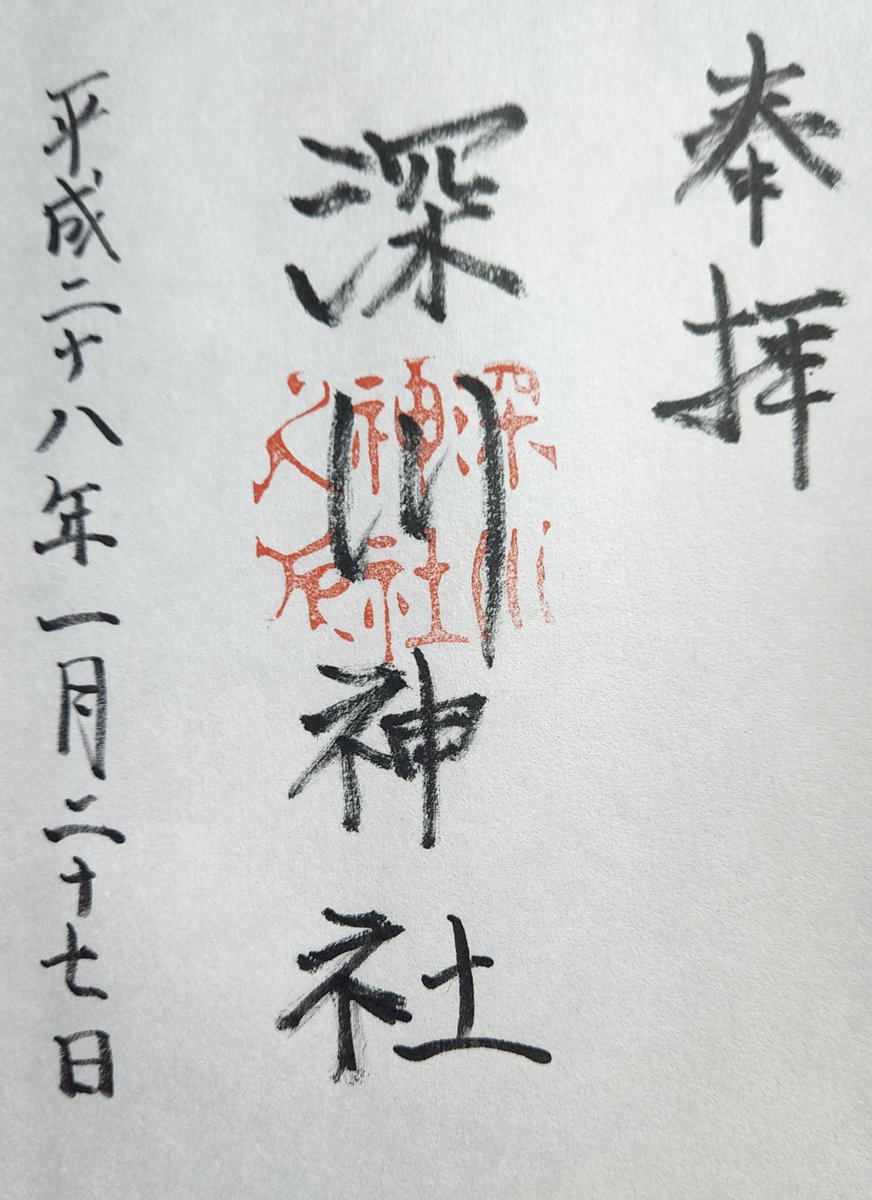 奉拝
深川神社
深川
神社
之
平成二十八年一月二十七日